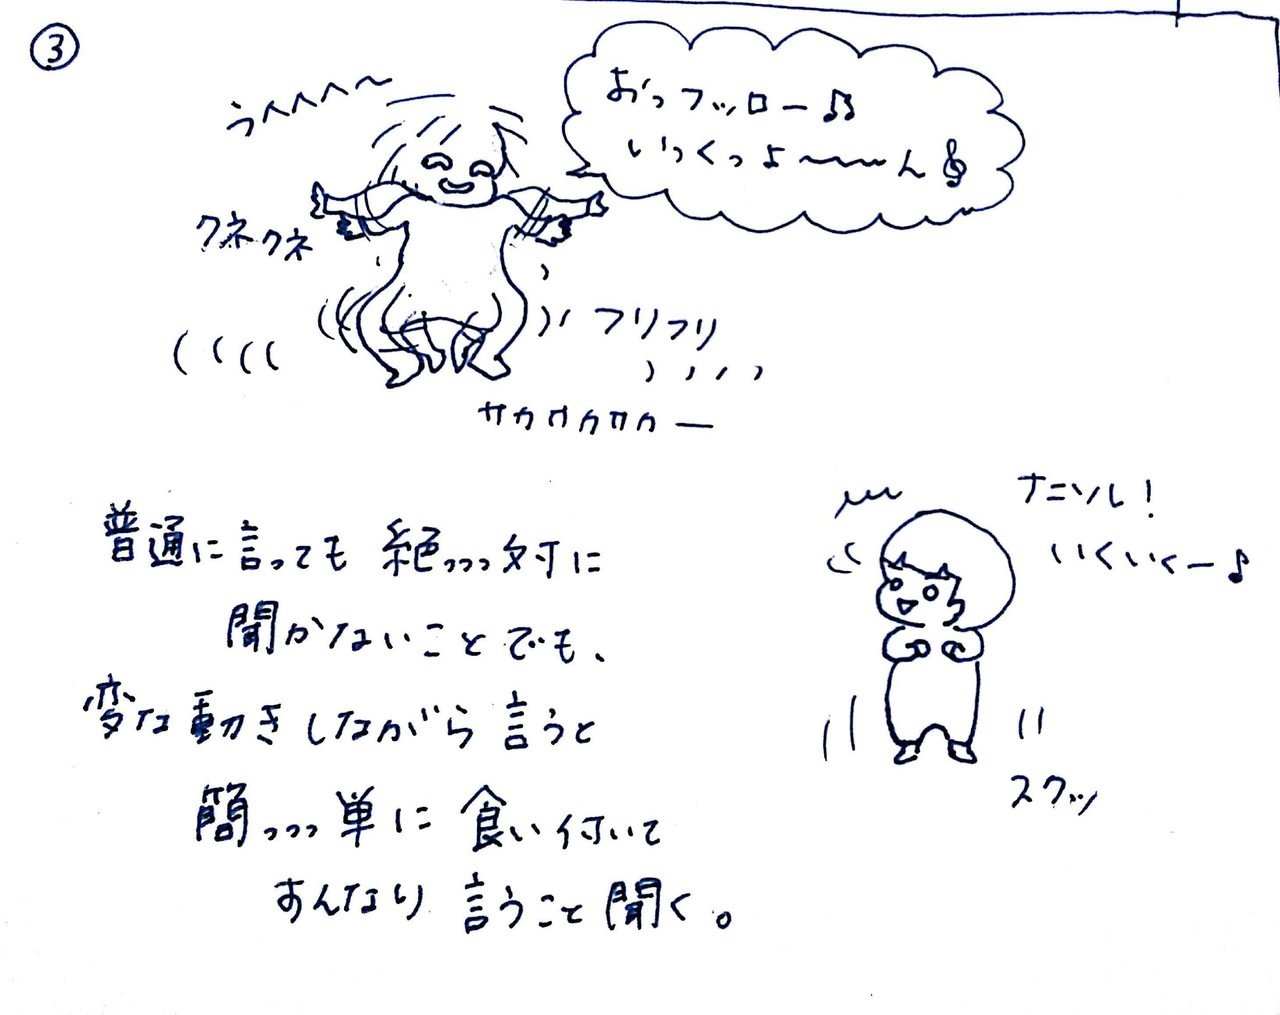 ③
うへへへ〜
おっフッロー♫
いっくっよ〜〜〜ん𝄞
クネクネ
フリフリ
サカサカサカー
ナニソレ！
いくいくー♪
スクッ
普通に言っても 絶っっっ対に
聞かないことでも、
変な動きしながら 言うと
簡っっっ単に 食い付いて
すんなり 言うこと聞く。